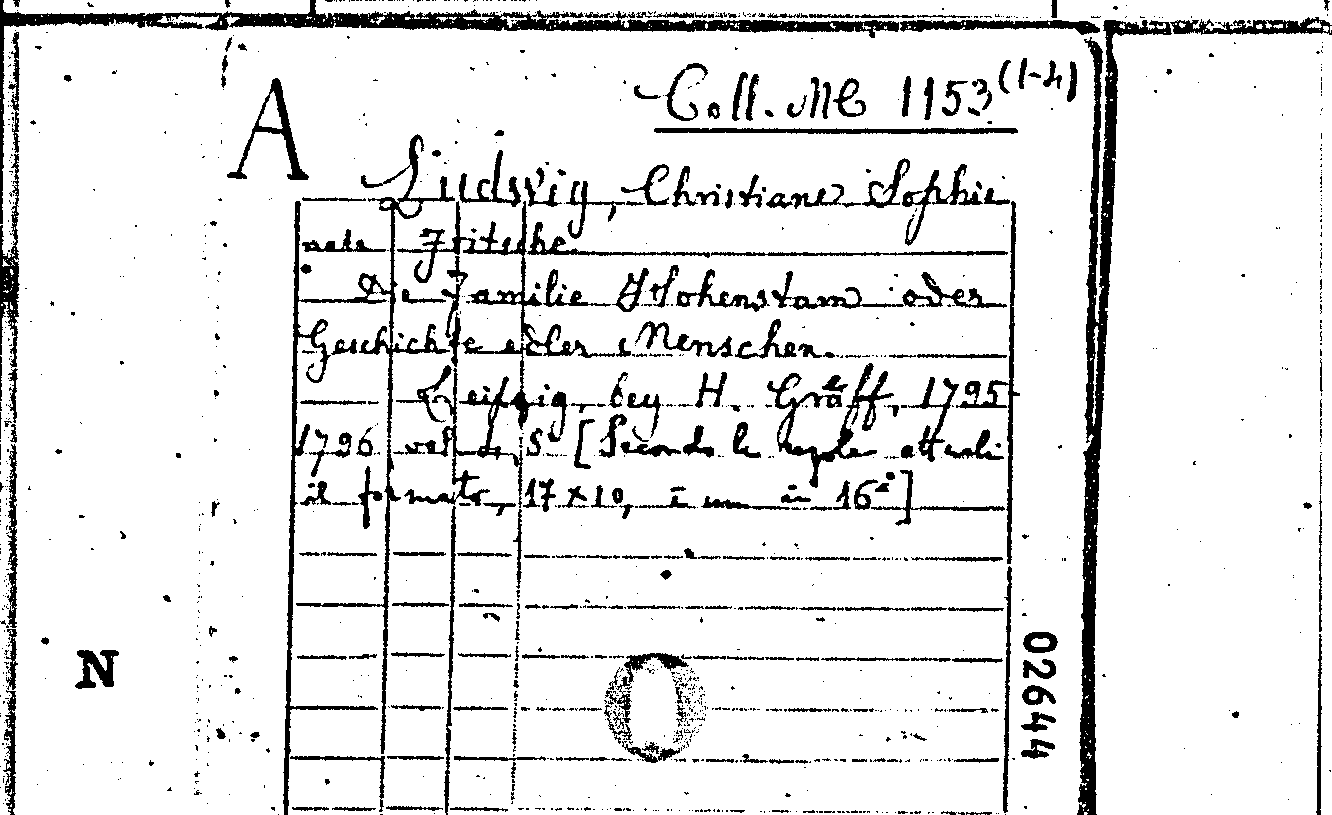 A
Coll. MC 1153 (1-4)
Ludvig, Christiane Sophie
nata Fritsche.
Die Familie Hohenstam oder
Geschichte edler Menschen.
Leipzig, bey H. Gräff, 1795-
1796 vol. 4, 8° [Secondo le regole attuali
il formato, 17x10, è un in 16°]
N
02644